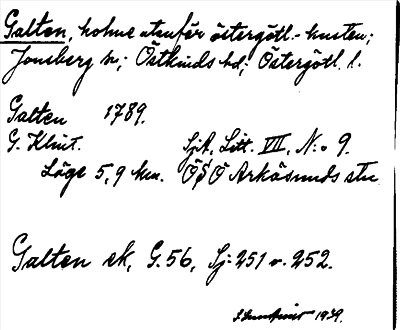 Galten, holme utanför östergötl.-kusten;
Jonsberg sn; Östkinds hd; Östergötl. l.
Galten 1789.
G. Klint. Sjk. Litt. VII, N:o 9.
Läge 5,9 km. ÖSÖ Arkösunds stn
Galten ek, G. 56, Sj: 251 o. 252.
1939.